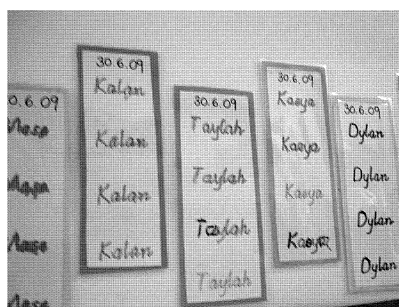 0.6.09
30.6.09
Kalan
Kalan
Kalan
Kalan
30.6.09
Taylah
Taylah
Taylah
Taylah
30.6.09
Kaeya
Kaeya
Kaeya
Kaeya
30.6.09
Dylan
Dylan
Dylan
Dylan